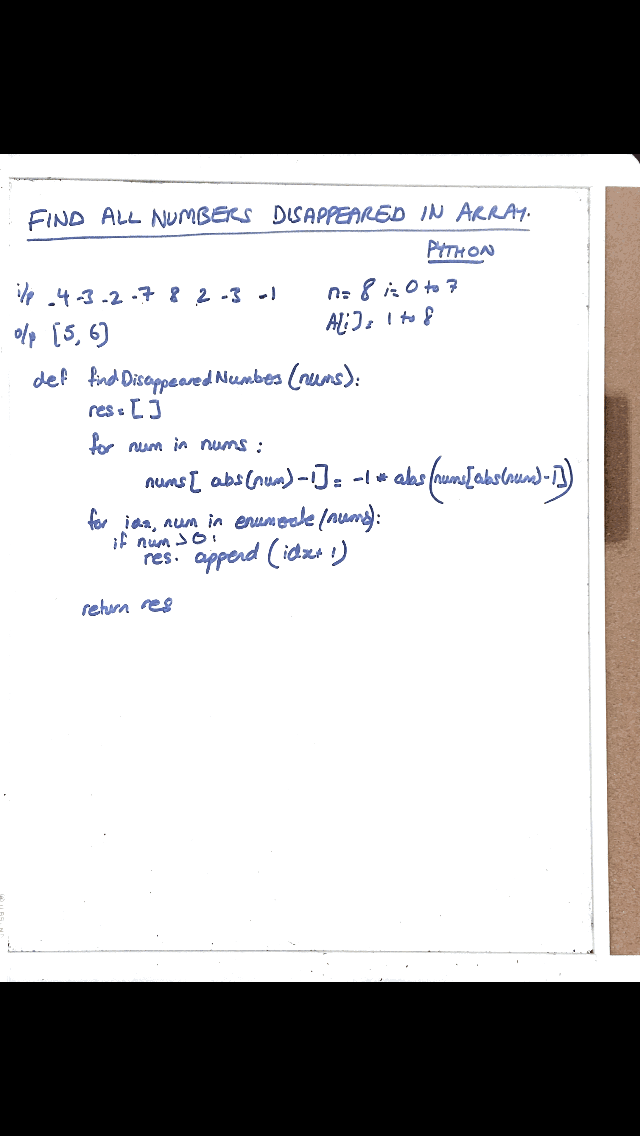 FIND ALL NUMBERS DISAPPEARED IN ARRAY.
PYTHON
i/p -4 -3 -2 -7 8 2 -3 -1 n= 8 i= 0 to 7
o/p [5, 6] A[i] = 1 to 8
def findDisappearedNumber(nums):
res = [ ]
for num in nums :
nums[ abs(num) -1] = -1 * abs(nums[abs(num) -1])
for idx, num in enumerate(nums):
if num > 0:
res. append (idx+1)
return res